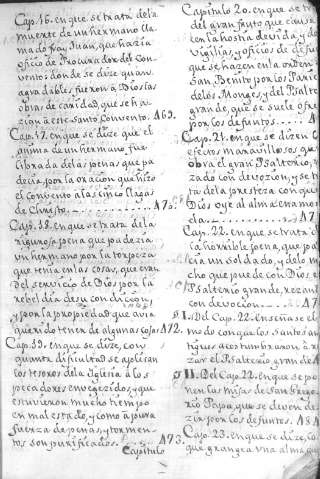 Cap. 16. en que se trata de la
muerte de un hermano lla-
mado fray Juan, que hazia
oficio de Procurador del Con-
vento: donde se dize quan
agradables fueron a Dios las
obras de caridad, que se ha-
zian a este santo Convento. A69.
Cap. 17. en que se dize que el
anima de un hermano, fue
librada de las penas que pa-
decia, por la oracion que hizo
el convento a las cinco llagas
de Christo. A70.
Cap. 18. en que se trata de la
rigurosa pena que padezia
un hermano por la torpeza
que tenia en las cosas, que eran
del servicio de Dios, por la
rebeldia de su condicion,
y por la propiedad que avia
querido tener de algunas cosas A72.
Cap. 19. en que se dize, con
quanta dificultad se aplican
los tesoros de la Iglesia a los
pecadores envegezidos, y que
estuvieron mucho tiempo
en mal estado, y como a pura
fuerza de penas, y tormen-
tos son purificados. A73.
Capitulo
Capitulo 20. en que se tra
del gran fruto que causa
con la hostia de vida, y de
vigilias, y oficios de difun
que se hazen en la orden
San Benito por los Parie
de los Monges, y del Psalte
grande, que se suele ofre
por los defuntos. A
Cap. 21. en que se dizen
efectos maravillosos que
obra el gran Psalterio,
zado con devocion, y se t
ta de la presteza con que
Dios oye al alma en a mo
da. A7
Cap. 22. en que se trata
la horrible pena, que pa
cia un soldado, y de lo m
cho que puede con Dios e
Psalterio grande, rezan
con devocion. A7
§ I. Del Cap. 22. Enseñase el
modo con que los Santos an
tiguos acostumbraron, a r
zar el Psalterio grande A
§ II. Del Cap. 22. en que se po
nen las misas de San Grego
rio Papa, que se deven de
zir por los defuntos. A8
Cap. 23. en que se dize,
que grangea una alma, qu